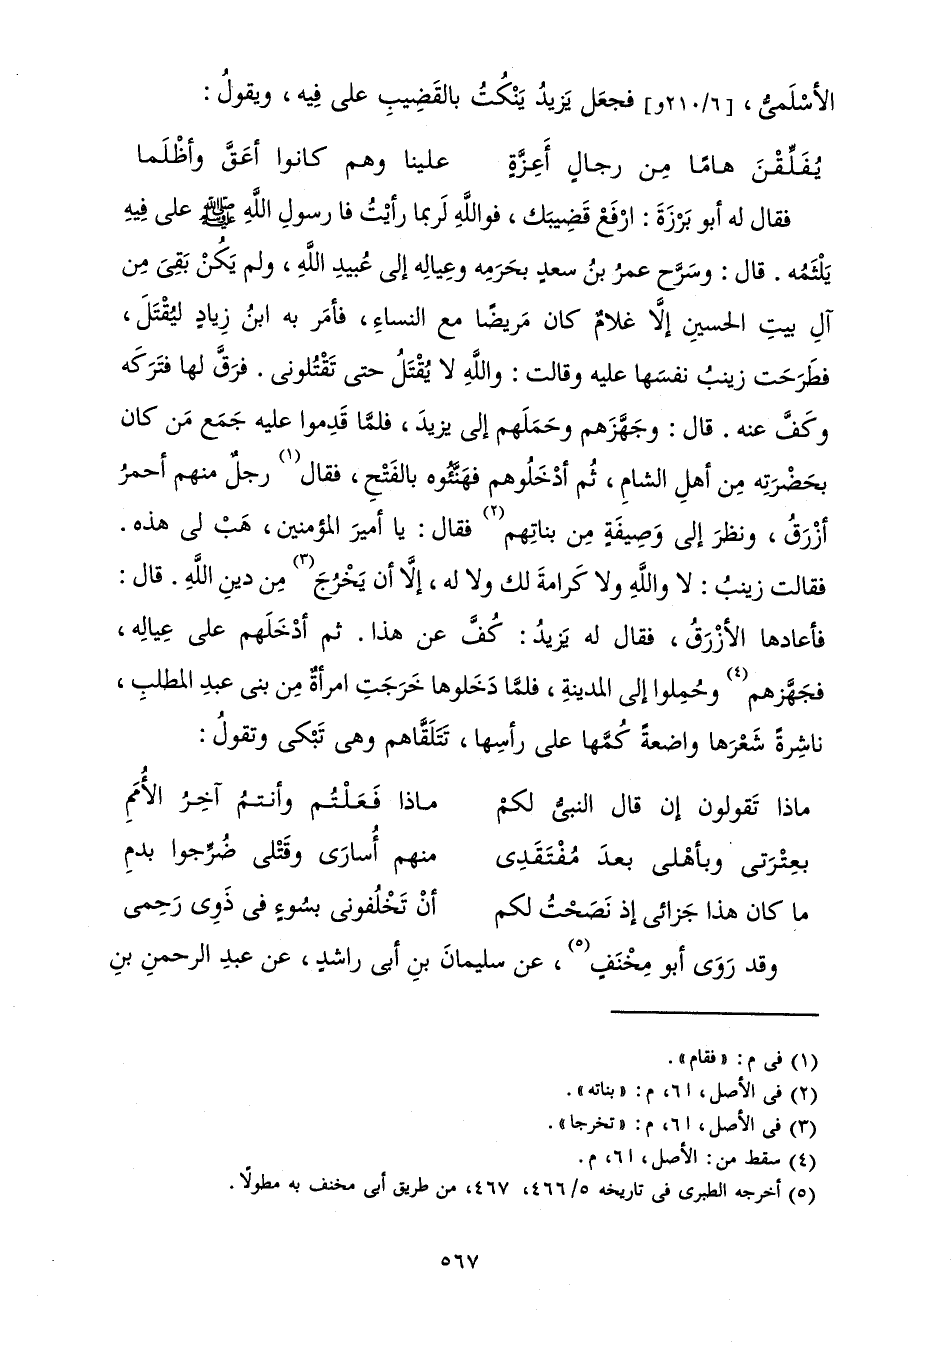 الأسْلَمىُّ ، [٢١٠/٦و] فجعَل يَزيدُ يَنْكُتُ بالقَضِيبِ على فِيه ، ويقولُ :
يُفَلِّقْنَ هامًا مِن رجالٍ أَعِزَّةٍ علينا وهم كانوا أعَقَّ وأظْلَما
فقال له أبو بَرْزَةَ : ارْفَعْ قَضِيبَك ، فواللَّهِ لَربما رأيْتُ فا رسولِ اللَّهِ ﷺ على فِيهِ
يَلْثَمُه . قال : وسَرَّح عمرُ بنُ سعدٍ بحَرَمِه وعِيالِه إلى عُبيدِ اللَّهِ ، ولم يَكُنْ بَقِىَ مِن
آلِ بيتِ الحسينِ إلَّا غلامٌ كان مَريضًا مع النساءِ ، فأمَر به ابنُ زِيادٍ ليُقْتَلَ ،
فطَرَحَت زينبُ نفسَها عليه وقالت : واللَّهِ لا يُقْتَلُ حتى تَقْتُلونى . فرَقَّ لها فتَرَكَه
وكَفَّ عنه . قال : وجَهَّزَهم وحَمَلَهم إلى يزيدَ ، فلمَّا قَدِموا عليه جَمَع مَن كان
بحَضْرَتِه مِن أهلِ الشامِ ، ثُم أدْخَلُوهم فهَنَّئُوه بالفَتْحِ ، فقال(١) رجلٌ منهم أحمرُ
أزْرَقُ ، ونظرَ إلى وَصِيفَةٍ مِن بناتِهم(٢) فقال : يا أميرَ المؤمنين ، هَبْ لى هذه .
فقالت زينبُ : لا واللَّهِ ولا كَرامةَ لك ولا له ، إلَّا أن يَخْرُجَ(٣) مِن دينِ اللَّهِ . قال :
فأعادها الأزْرَقُ ، فقال له يَزيدُ : كُفَّ عن هذا . ثم أدْخَلَهم على عِيالِه ،
فجهَّزهم(٤) وحُمِلوا إلى المدينةِ ، فلمَّا دَخَلوها خَرَجَتِ امرأةٌ مِن بنى عبدِ المطلبِ ،
ناشِرةً شَعْرَها واضعةً كُمَّها على رأسِها ، تَتَلَقَّاهم وهى تَبْكى وتقولُ :
ماذا تَقولون إن قال النبىُّ لكمْ ماذا فَعَلْتُم وأنتمُ آخِرُ الأُمَمِ
بعِتْرَتى وبأهْلى بعدَ مُفْتَقَدِى منهم أُسارَى وقَتْلى ضُرِّجوا بدمِ
ما كان هذا جَزائى إذ نَصَحْتُ لكم أنْ تَخْلُفونى بسُوءٍ فى ذَوِى رَحِمى
وقد رَوَى أبو مِخْنَفٍ(٥) ، عن سليمانَ بنِ أبى راشدٍ ، عن عبدِ الرحمنِ بنِ
(١) فى م : «فقام» .
(٢) فى الأصل ، ٦١ ، م : «بناته» .
(٣) فى الأصل ، ٦١ ، م : «تخرجا» .
(٤) سقط من : الأصل ، ٦١ ، م .
(٥) أخرجه الطبرى فى تاريخه ٥/ ٤٦٦، ٤٦٧، من طريق أبى مخنف به مطولًا .
٥٦٧